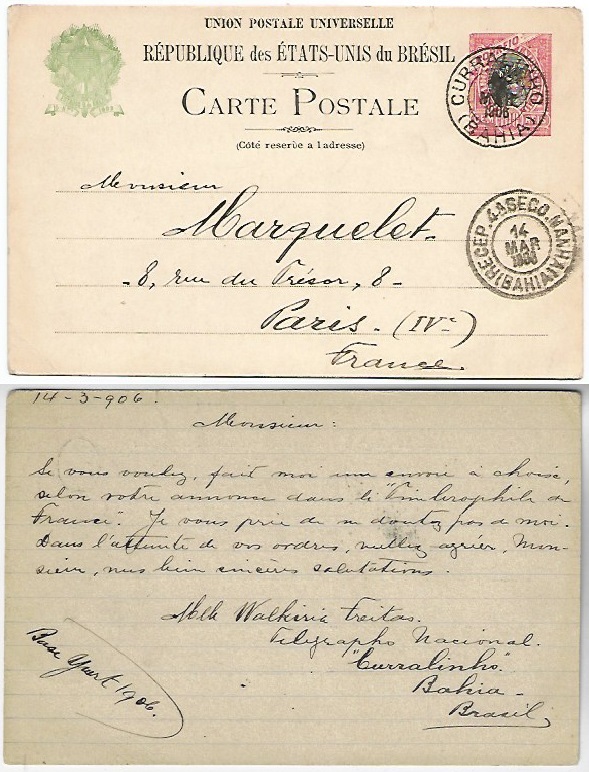 UNION POSTALE UNIVERSELLE
RÉPUBLIQUE des ÉTATS-UNIS du BRÉSIL
CARTE POSTALE
(Côté reserve a l adresse)
CURRALINHO
MAR
1906
(BAHIA)
Monsieur
Marquelet.
- 8, rue du Trésor, 8 -
Paris. (IVe)
France.
RECEP. 4ASECO. MANHA
14
MAR
1906
(BAHIA)
14-3-906.
Monsieur:
Si vous voulez, fait moi une envoie à choise,
selon votre annonse dans li "Timbrophile de
France". Je vous prie de n doutez pas de moi.
Dans l'attente de vos ordres, veullez agrier, Mon-
sieur, mes bien sincères salutations.
Mlle Walkiria Freitas.
Telegrapho Nacional.
"Curralinho".
Bahia -
Brasil
Base Yvert 1906.